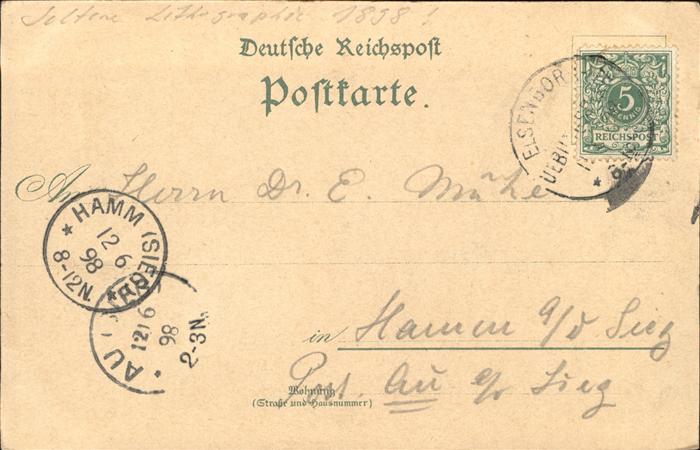 Seltene Lithographie 1898!
Deutsche Reichspost
Postkarte.
5
PFENNIG
REICHSPOST
ELSENBOR
UEBU
An Herrn Dr. E. Mühe
* HAMM (SIEG) *
12 6
98
8-12N.
AU
12 6
98
2-3N.
in Hamm a/d Sieg
Post. Au a/ Sieg
Wohnung
(Straße und Hausnummer)